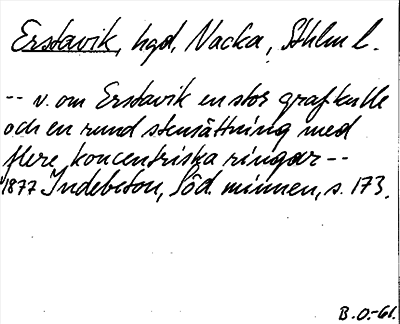 Erstavik, hgd, Nacka, Sthlm l.
-- v. om Erstavik en stor grafkulle
och en rund stensättning med
flere koncentriska ringar --
1877 Indebetou, Söd. minnen, s. 173.
B.O.-61.